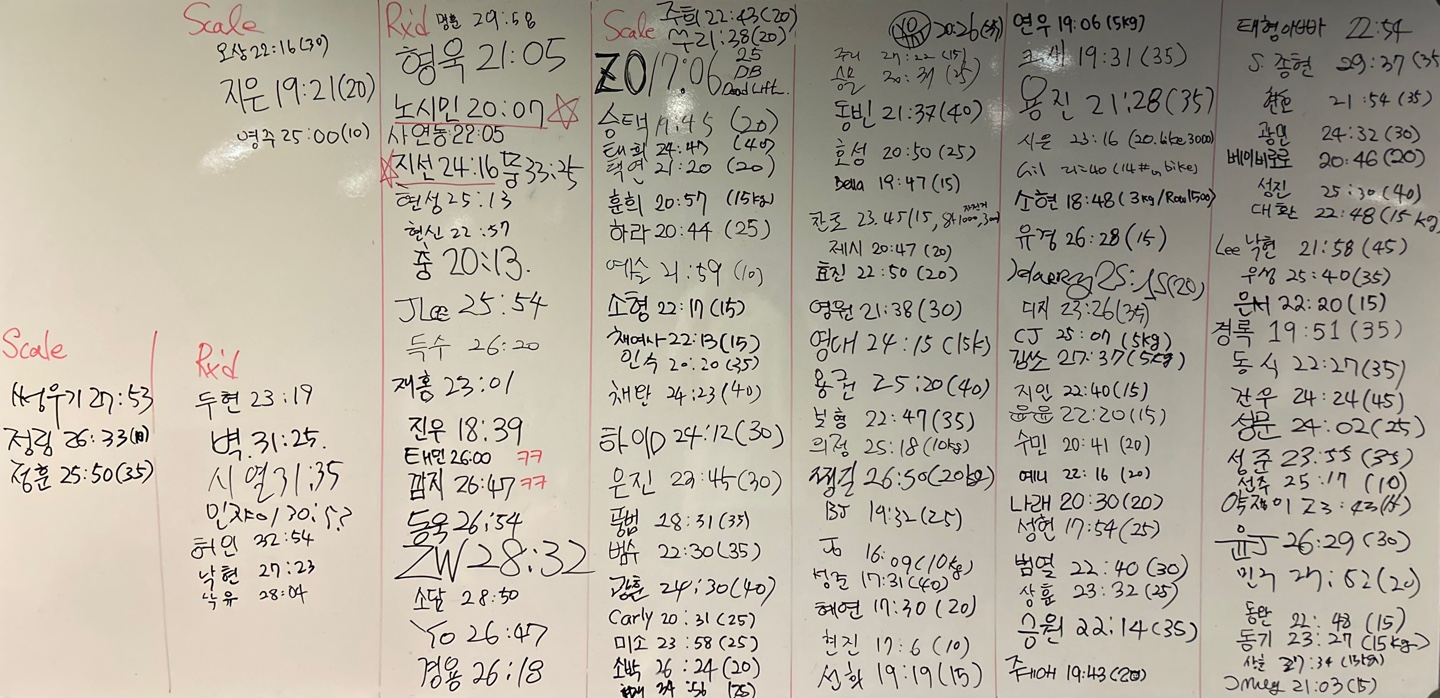 Scale
오상 22:16(30)
지은 19:21(20)
영주 25:00(10)
Scale
썽우기 27:53
정림 26:33(10)
정훈 25:50(35)
Rx'd
두현 23:19
벽. 31:25.
시열 31:35
민쟈이 30:5?
허인 32:54
낙현 27:23
낙유 28:04
Rx'd 명훈 29:58
형욱 21:05
노시인 20:07
사연동 22:05
지선 24:16 뚱 33:25
현성 25:13
현신 22:57
충 20:13.
JLee 25:54
득수 26:20
재홍 23:01
진우 18:39
태민 26:00 ㅋㅋ
깜지 26:47 ㅋㅋ
등욱 26:54
ZW 28:32
소담 28:50
Yo 26:47
경용 26:18
Scale 주희 22:43(20)
쑤 21:38(20)
ZO 17:06 25 DB Dead Lift.
승택 19:45 (20)
태희 24:47 (40)
택연 21:20 (20)
훈희 20:57 (15kg)
하라 20:44 (25)
예슬 21:59 (10)
소형 22:17 (15)
채여사 22:13(15)
인숙 20:20(35)
채탄 24:23(40)
하이D 24:12(30)
은진 23:45(30)
품범 28:31(35)
범수 22:30(35)
광훈 24:30(40)
Carly 20:31(25)
미소 23:58(25)
소박 26:24(20)
34:56 (25)
20:26(35)
주니 27:22(15)
승모 20:39(25)
동빈 21:37(40)
효성 20:50(25)
Bella 19:47(15)
찬호 23.45(15,
제시 20:47(20)
효진 22:50(20)
영원 21:38(30)
영대 24:15(15k)
용근 25:20(40)
보형 22:47(35)
의정 25:18(10kg)
쩡길 26:50(20
BJ 19:32(25)
Jo 16:09(10kg)
성준 17:31(40)
혜연 17:30(20)
현진 17:6(10)
선화 19:19(15)
연우 19:06(5kg)
19:31(35)
용진 21:28(35)
시은 23:16(20.bike3000)
Gil 21:40(14#, bike)
소현 18:48(3kg/Row1500)
유경 26:28(15)
25:15(20)
디지 23:26(35)
CJ 25:07(5kg)
감소 27:37(5kg)
지인 22:40(15)
윤윤 22:20(15)
수민 20:41(20)
예니 22:16(20)
나래 20:30(20)
성현 17:54(25)
범열 22:40(30)
상훈 23:32(25)
승원 22:14(35)
주예 19:43(20)
태형아빠 22:54
S. 종현 29:37(35
21:54(35)
광민 24:32(30)
베이비로로 20:46(20)
성진 25:30(40)
대환 22:48(15kg)
Lee 낙현 21:58(45)
우성 25:40(35)
은서 22:20(15)
경록 19:51(35)
동식 22:27(35)
간우 24:24(45)
성문 24:02(25)
성준 23:55(35)
선주 25:17(10)
약쟁이 23:43
윤J 26:29(30)
민국 27:52(20)
동완 22:48(15)
동기 23:27(15kg)
27:34(15kg)
21:03(5)